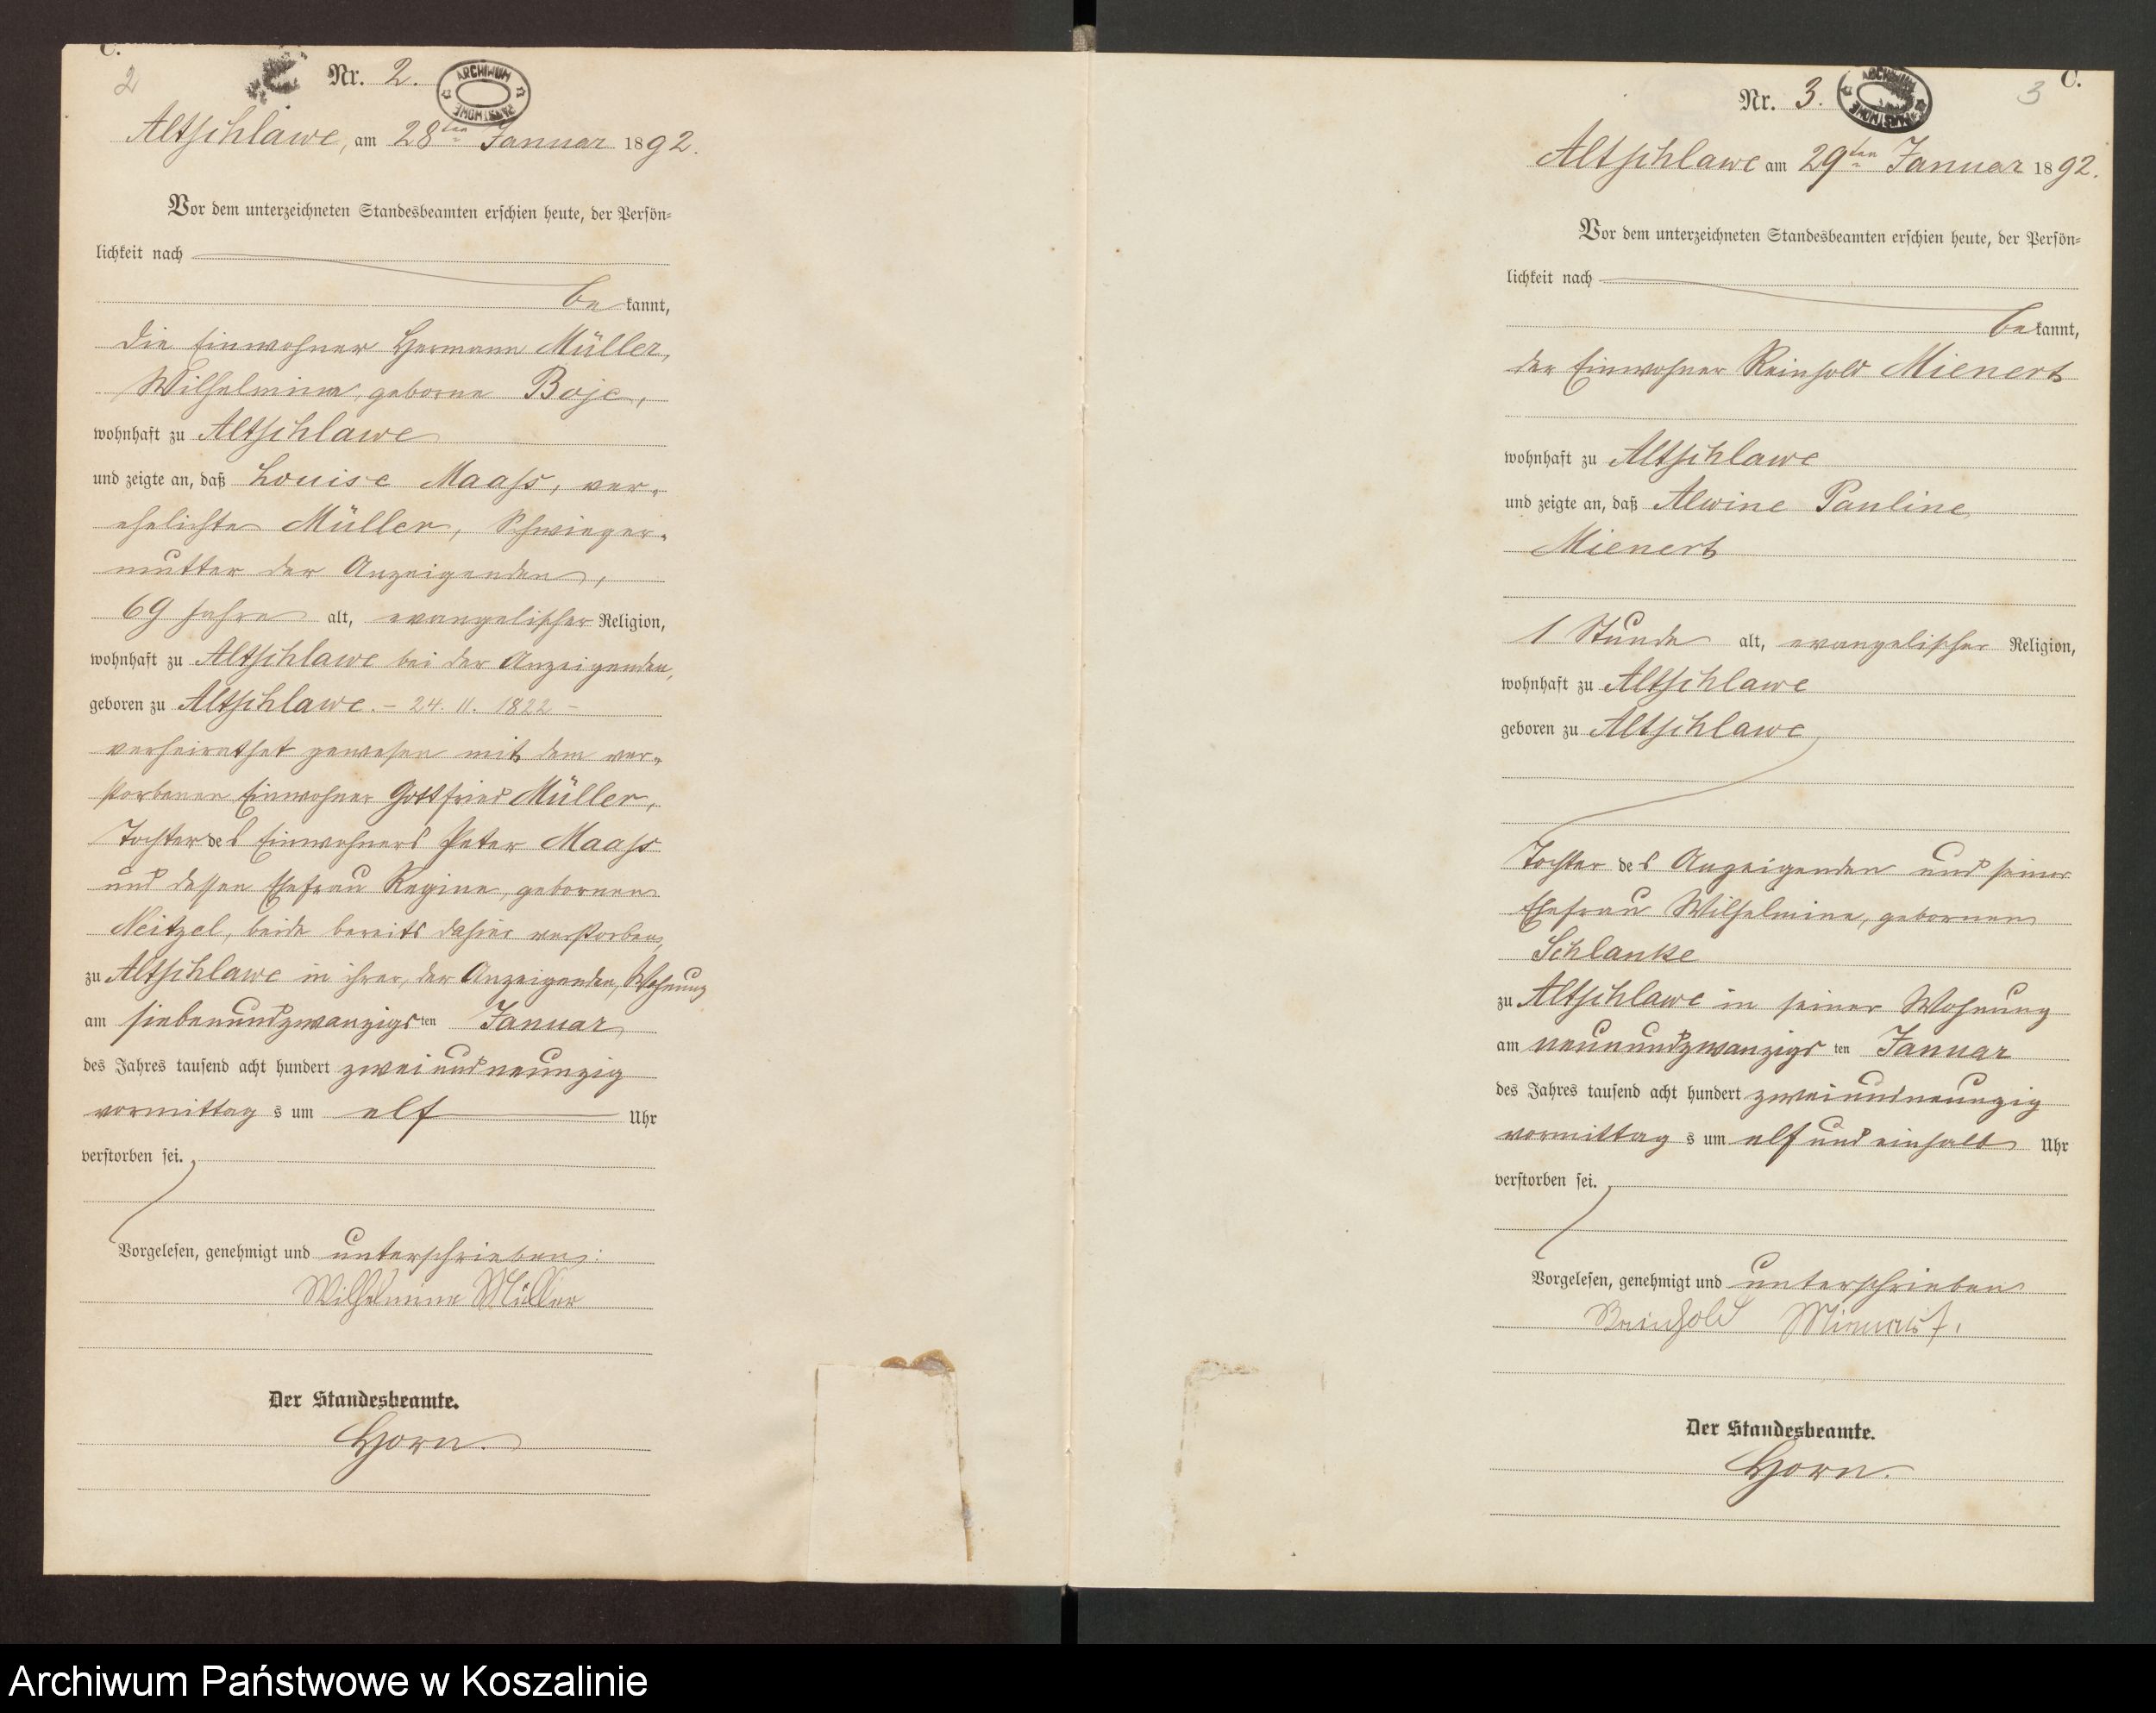 C.
2
Nr. 2.
ARCHIWUM PAŃSTWOWE
Altschlawe, am 28ten Januar 1892.
Vor dem unterzeichneten Standesbeamten erschien heute, der Persön-
lichkeit nach
be kannt,
die Einwohner Hermann Müller,
Wilhelmine, geborne Boje,
wohnhaft zu Altschlawe
und zeigte an, daß Louise Maaß, ver-
ehelichte Müller, Schwieger-
mutter der Anzeigenden,
69 Jahre alt, evangelischer Religion,
wohnhaft zu Altschlawe bei der Anzeigenden,
geboren zu Altschlawe. – 24. 11. 1822 –
verheirathet gewesen mit dem ver-
storbenen Einwohner Gottfried Müller,
Tochter des Einwohners Peter Maaß
und dessen Ehefrau Regine, gebornen
Neitzel, beide bereits dahier verstorben,
zu Altschlawe in ihrer, der Anzeigenden, Wohnung
am siebenundzwanzigsten Januar
des Jahres tausend acht hundert zweiundneunzig
vormittags um elf Uhr
verstorben sei.
Vorgelesen, genehmigt und unterschrieben:
Wilhelmine Müller
Der Standesbeamte.
Horn.
C.
3
Nr. 3.
ARCHIWUM PAŃSTWOWE
Altschlawe am 29ten Januar 1892.
Vor dem unterzeichneten Standesbeamten erschien heute, der Persön-
lichkeit nach
be kannt,
der Einwohner Reinhold Mienert
wohnhaft zu Altschlawe
und zeigte an, daß Alwine Pauline
Mienert
1 Stunde alt, evangelischer Religion,
wohnhaft zu Altschlawe
geboren zu Altschlawe
Tochter des Anzeigenden und seiner
Ehefrau Wilhelmine, gebornen
Schlanke
zu Altschlawe in seiner Wohnung
am neunundzwanzigsten Januar
des Jahres tausend acht hundert zweiundneunzig
vormittags um elf und einhalb Uhr
verstorben sei.
Vorgelesen, genehmigt und unterschrieben
Reinhold Mienert.
Der Standesbeamte.
Horn.
Archiwum Państwowe w Koszalinie